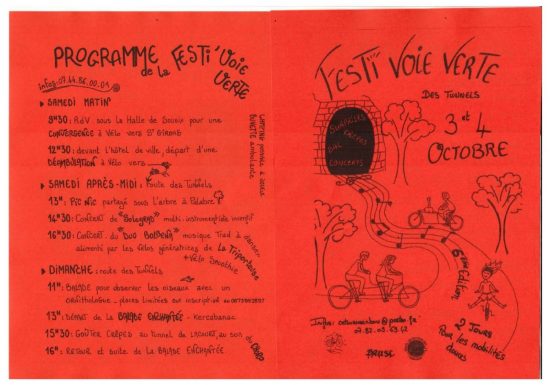 PROGRAMME
de la FESTI'VOIE VERTE
Infos: 07.44.86.00.01
CAMPING possible à
BUVETTE ambulante
SAMEDI MATIN
8H30: RdV sous la Halle de Soueix pour une
CONVERGENCE à vélo vers St GIRONS
12H30: devant l'hôtel de ville, départ d'une
DÉAMBULATION à vélo vers
SAMEDI APRÈS-MIDI: route des Tunnels
13H: PIC NIC partagé sous l'Arbre à Palabre
14H30: CONCERT de multi-instrumentiste inventif
16H30: CONCERT du "DUO musique Trad à danser
alimenté par les vélos génératrices de LA
+ Vélo Smoothie
DIMANCHE: route des Tunnels
11H: BALADE pour observer les oiseaux avec un
ornithologue - places limitées sur inscription au
13H: DÉPART de la BALADE ENCHANTÉE - Kercabanac
15H30: GOÛTER CRÊPES au tunnel de LACOURT, au son du
16H: RETOUR et suite de la BALADE ENCHANTÉE
FESTI' VOIE VERTE
DES TUNNELS
3 et 4
OCTOBRE
SURPRISES
BAL
CONCERTS
6ème Édition
2 JOURS
Pour les mobilités
douces
Infos: